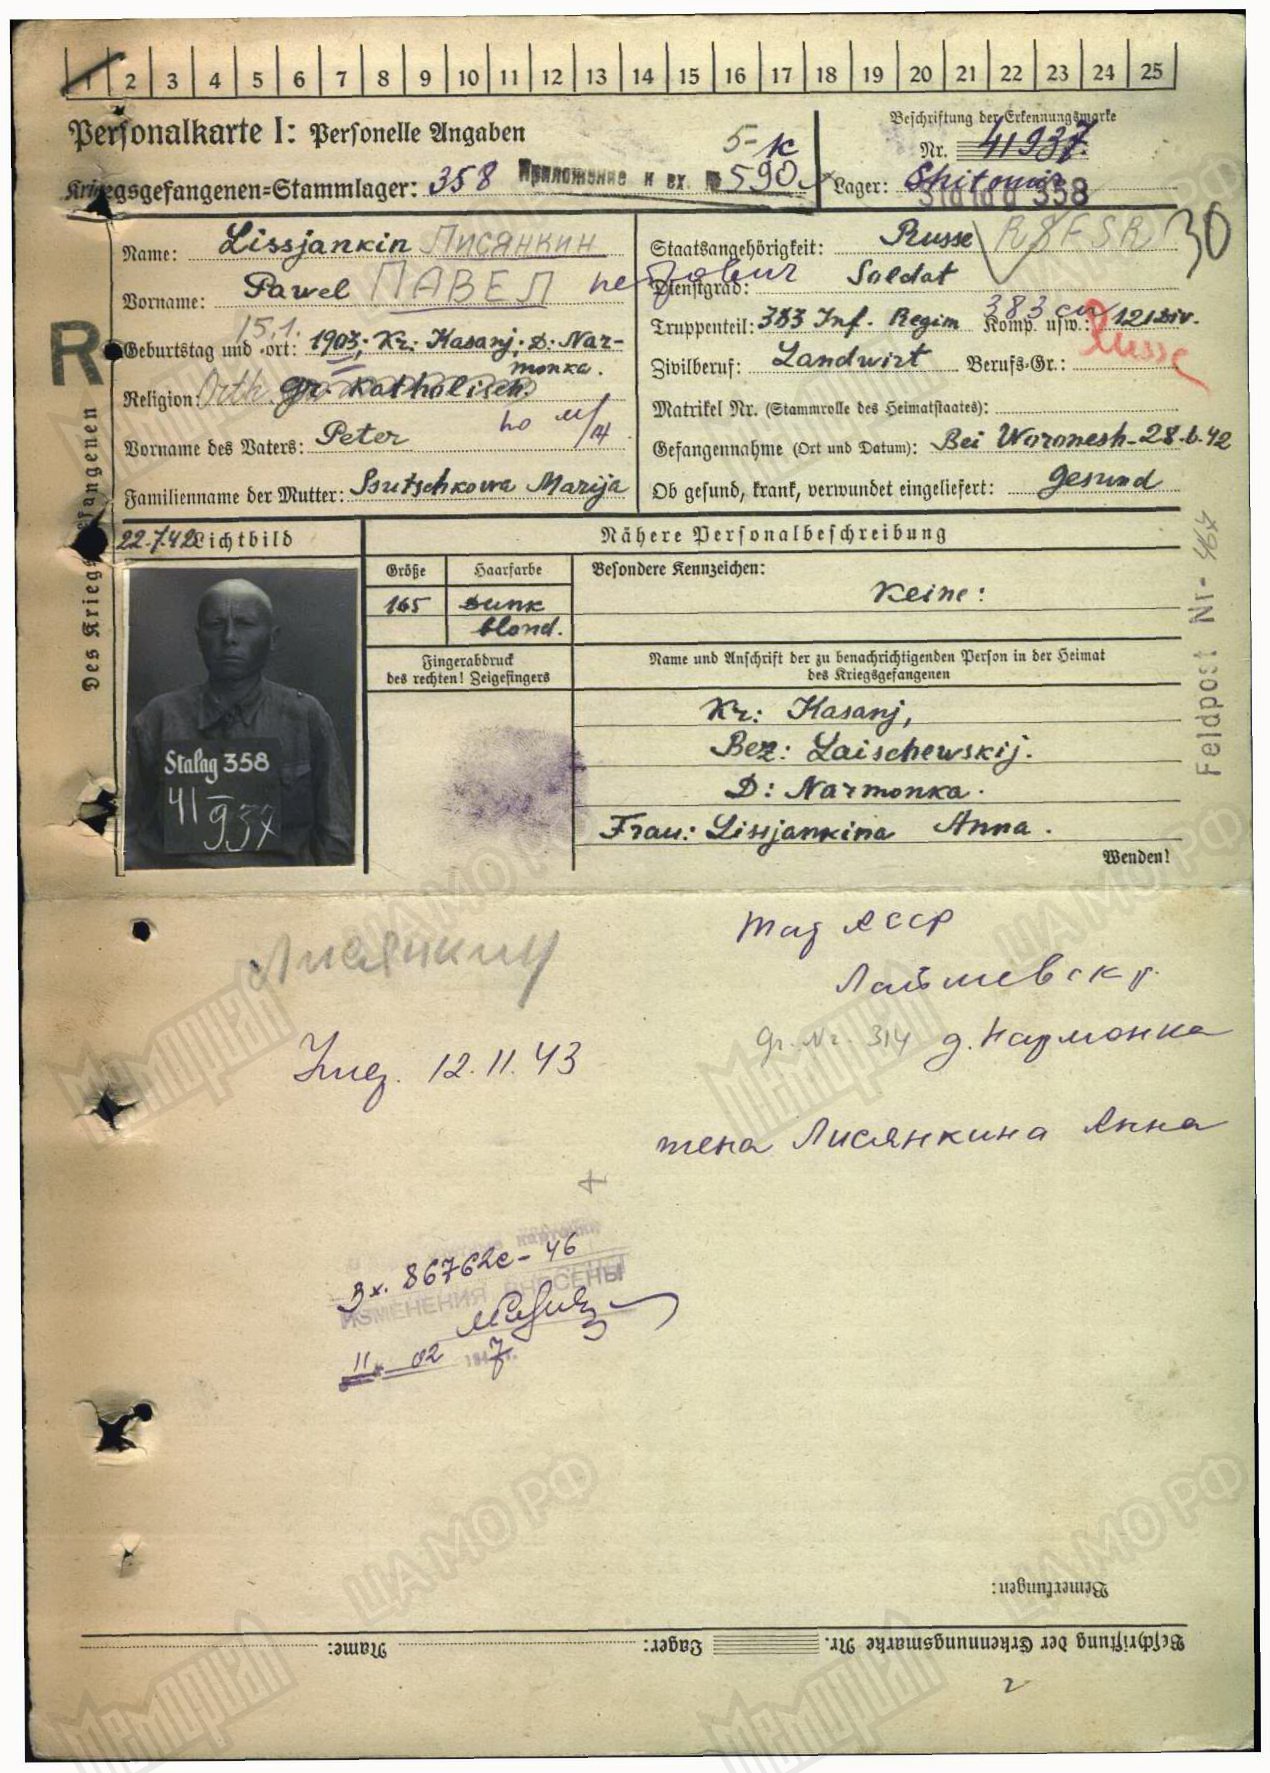 1 2 3 4 5 6 7 8 9 10 11 12 13 14 15 16 17 18 19 20 21 22 23 24 25
Personalkarte I: Personelle Angaben
5-к
Beschriftung der Erkennungsmarke
Nr. 41937.
Kriegsgefangenen=Stammlager: 358
Приложение к вх. № 590
Lager: Shitomir
Stalag 358
30
Name: Lissjankin ЛИСЯНКИН
Staatsangehörigkeit: Russe RSFSR
Vorname: Pawel ПАВЕЛ Петрович
Dienstgrad: Soldat
15.1.
Geburtstag und =ort: 1903; Kr: Kasanj; D: Nar-
monka.
Truppenteil: 383 Inf. Regim Komp. usw.: 121 Div.
383 сп
Russe
R
Religion: Orth. gr. Katholisch.
Zivilberuf: Landwirt Berufs-Gr.:
Matrikel Nr. (Stammrolle des Heimatstaates):
Vorname des Vaters: Peter
Gefangennahme (Ort und Datum): Bei Woronesh-28.6.42
Familienname der Mutter: Ssutschkowa Marija
Ob gesund, krank, verwundet eingeliefert: gesund
Des Kriegsgefangenen
22.7.42 Lichtbild
Nähere Personalbeschreibung
Größe Haarfarbe Besondere Kennzeichen:
165 dunk
blond.
Keine:
Fingerabdruck
des rechten! Zeigefingers
Name und Anschrift der zu benachrichtigenden Person in der Heimat
des Kriegsgefangenen
Kr: Kasanj,
Bez: Laischewskij.
D: Narmonka.
Frau: Lissjankina Anna.
Wenden!
Feldpost Nr-
Stalag 358
41937
Лисянкин
Тат АССР
Лаишевск р.
gr. Nr. 314 д. Нармонка
12.11.43
жена Лисянкина Анна
Вх. 86762с-46
ИЗМЕНЕНИЯ ВНЕСЕНЫ
11 02 1947 г.
Bemerkungen:
Beschriftung der Erkennungsmarke Nr. Lager: Name:
Мемориал
ЦАМО РФ